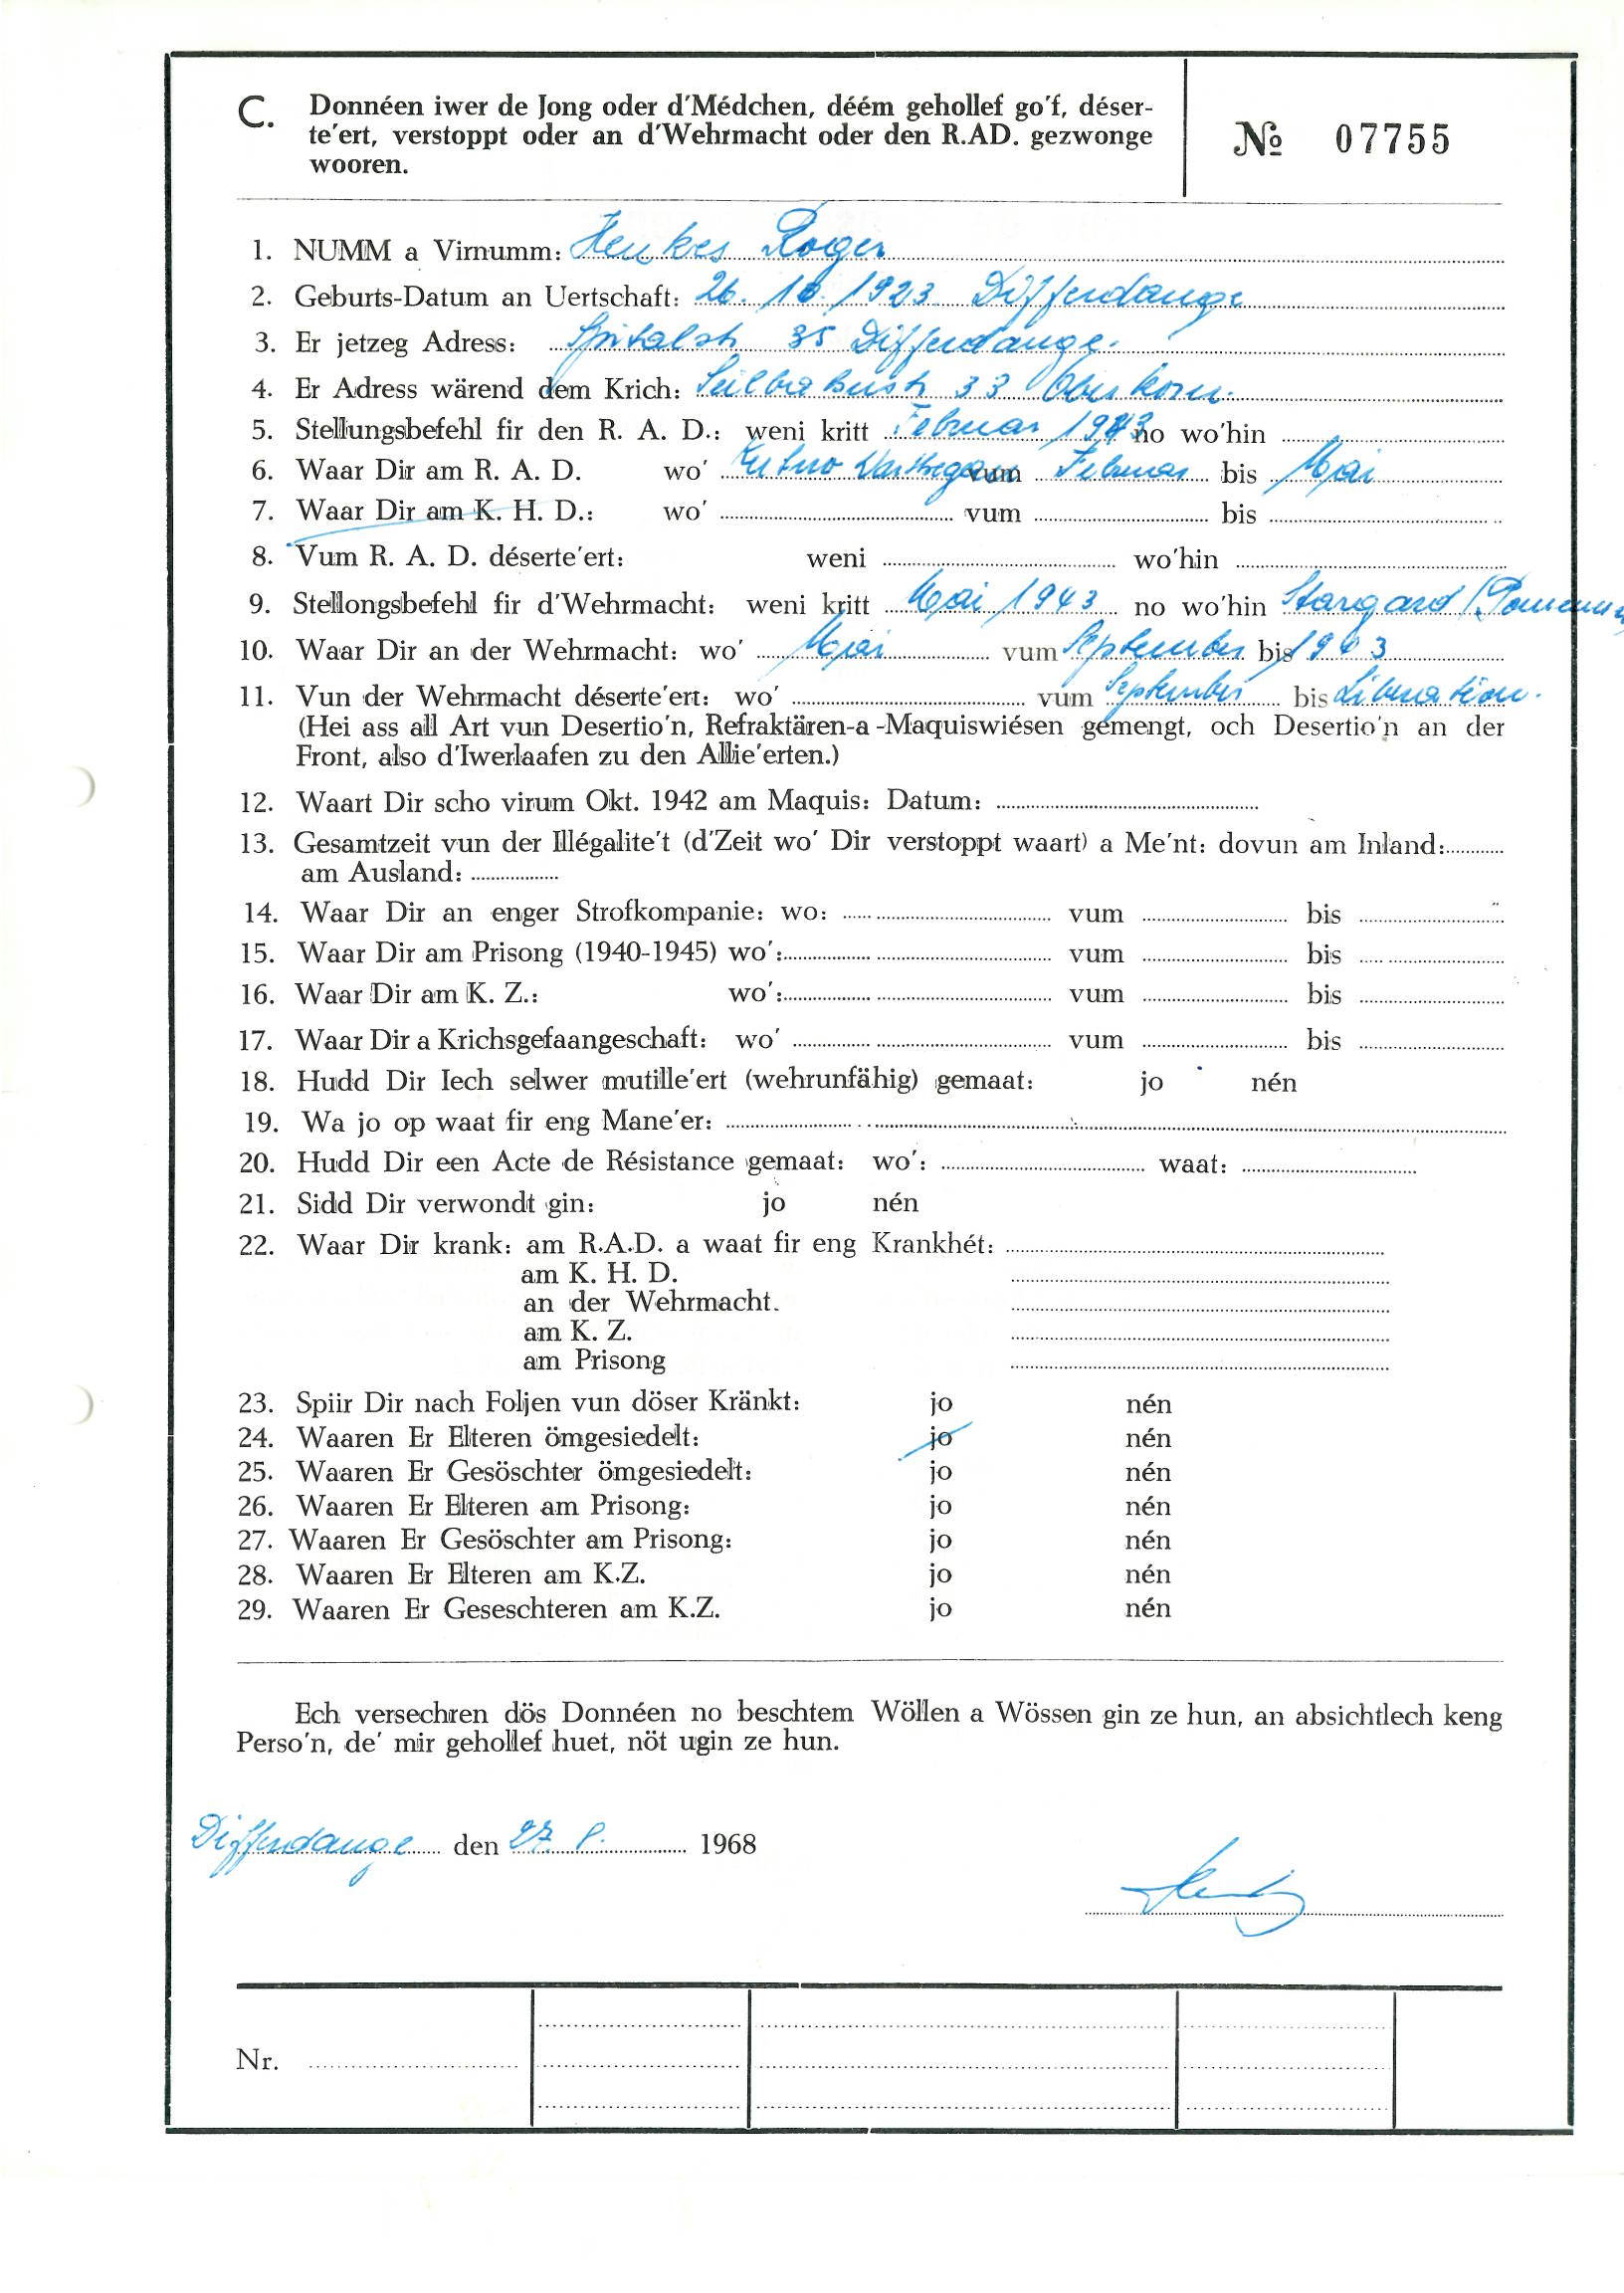 C. Donnéen iwer de Jong oder d'Médchen, déém gehollef go'f, déser-
te'ert, verstoppt oder an d'Wehrmacht oder den R.AD. gezwonge
wooren.
№ 07755
1. NUMM a Virnumm: Henkes Roger
2. Geburts-Datum an Uertschaft: 26. 10. 1923 Differdange
3. Er jetzeg Adress: Spitalstr 35 Differdange.
4. Er Adress wärend dem Krich: 33 Oberkorn.
5. Stellungsbefehl fir den R. A. D.: weni kritt Februar 1943 no wo'hin
6. Waar Dir am R. A. D. wo' Kutno Warthegau vum Februar bis Mai
7. Waar Dir am K. H. D.: wo' vum bis
8. Vum R. A. D. déserte'ert: weni wo'hin
9. Stellongsbefehl fir d'Wehrmacht: weni kritt Mai 1943 no wo'hin Stargard (Pommern)
10. Waar Dir an der Wehrmacht: wo' Mai vum September bis 1943
11. Vun der Wehrmacht déserte'ert: wo' vum September bis Libération.
(Hei ass all Art vun Desertio'n, Refraktären-a-Maquiswiésen gemengt, och Desertio'n an der
Front, also d'Iwerlaafen zu den Allie'erten.)
12. Waart Dir scho virum Okt. 1942 am Maquis: Datum:
13. Gesamtzeit vun der Illégalite't (d'Zeit wo' Dir verstoppt waart) a Me'nt: dovun am Inland:
am Ausland:
14. Waar Dir an enger Strofkompanie: wo: vum bis
15. Waar Dir am Prisong (1940-1945) wo': vum bis
16. Waar Dir am K. Z.: wo': vum bis
17. Waar Dir a Krichsgefaangeschaft: wo' vum bis
18. Hudd Dir Iech selwer mutille'ert (wehrunfähig) gemaat: jo nén
19. Wa jo op waat fir eng Mane'er:
20. Hudd Dir een Acte de Résistance gemaat: wo': waat:
21. Sidd Dir verwondt gin: jo nén
22. Waar Dir krank: am R.A.D. a waat fir eng Krankhét:
am K. H. D.
an der Wehrmacht.
am K. Z.
am Prisong
23. Spiir Dir nach Foljen vun döser Kränkt: jo nén
24. Waaren Er Elteren ömgesiedelt: jo nén
25. Waaren Er Gesöschter ömgesiedelt: jo nén
26. Waaren Er Elteren am Prisong: jo nén
27. Waaren Er Gesöschter am Prisong: jo nén
28. Waaren Er Elteren am K.Z. jo nén
29. Waaren Er Geseschteren am K.Z. jo nén
Ech versechren dös Donnéen no beschtem Wöllen a Wössen gin ze hun, an absichtlech keng
Perso'n, de' mir gehollef huet, nöt ugin ze hun.
Differdange den 27. 1968
Nr.